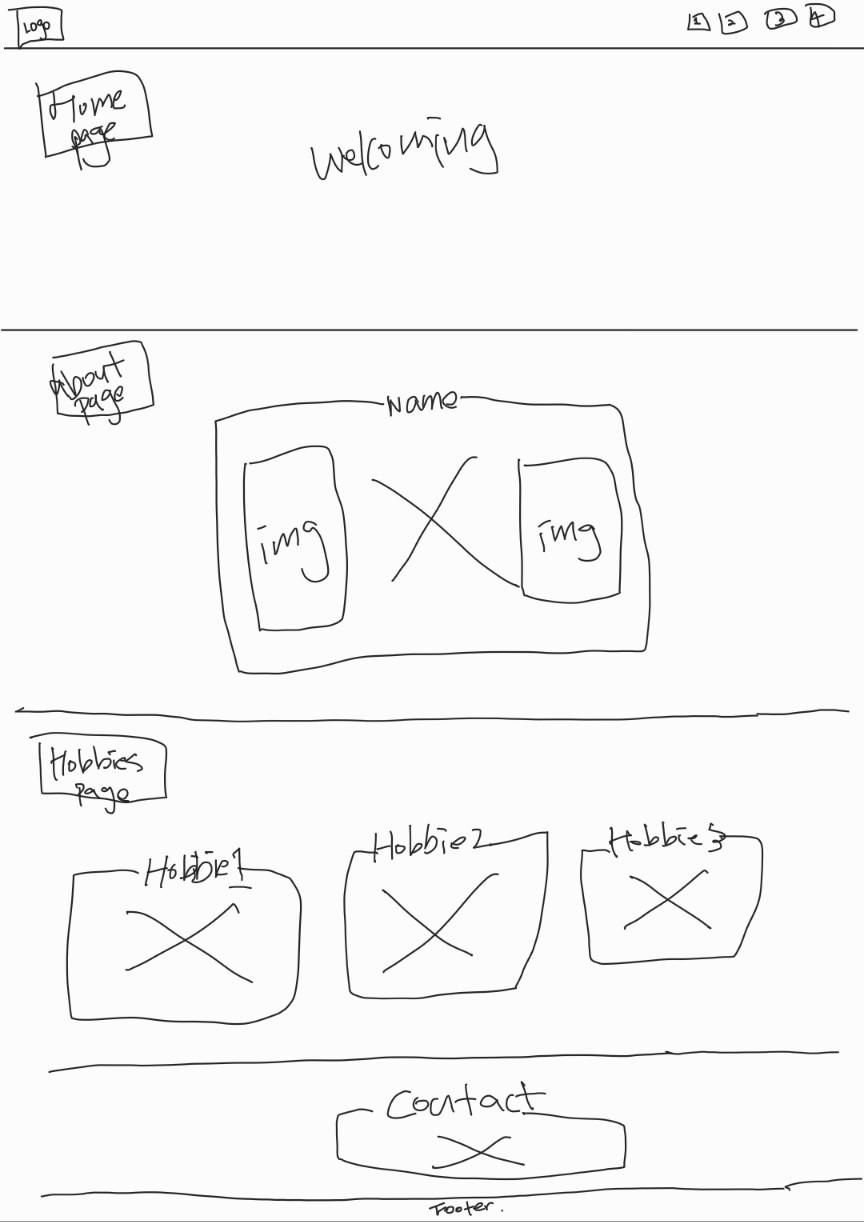 Logo
1 2 3 4
Home
page
Welcoming
About
page
Name
img
img
Hobbies
page
Hobbie1
Hobbie2
Hobbie3
Contact
Footer.